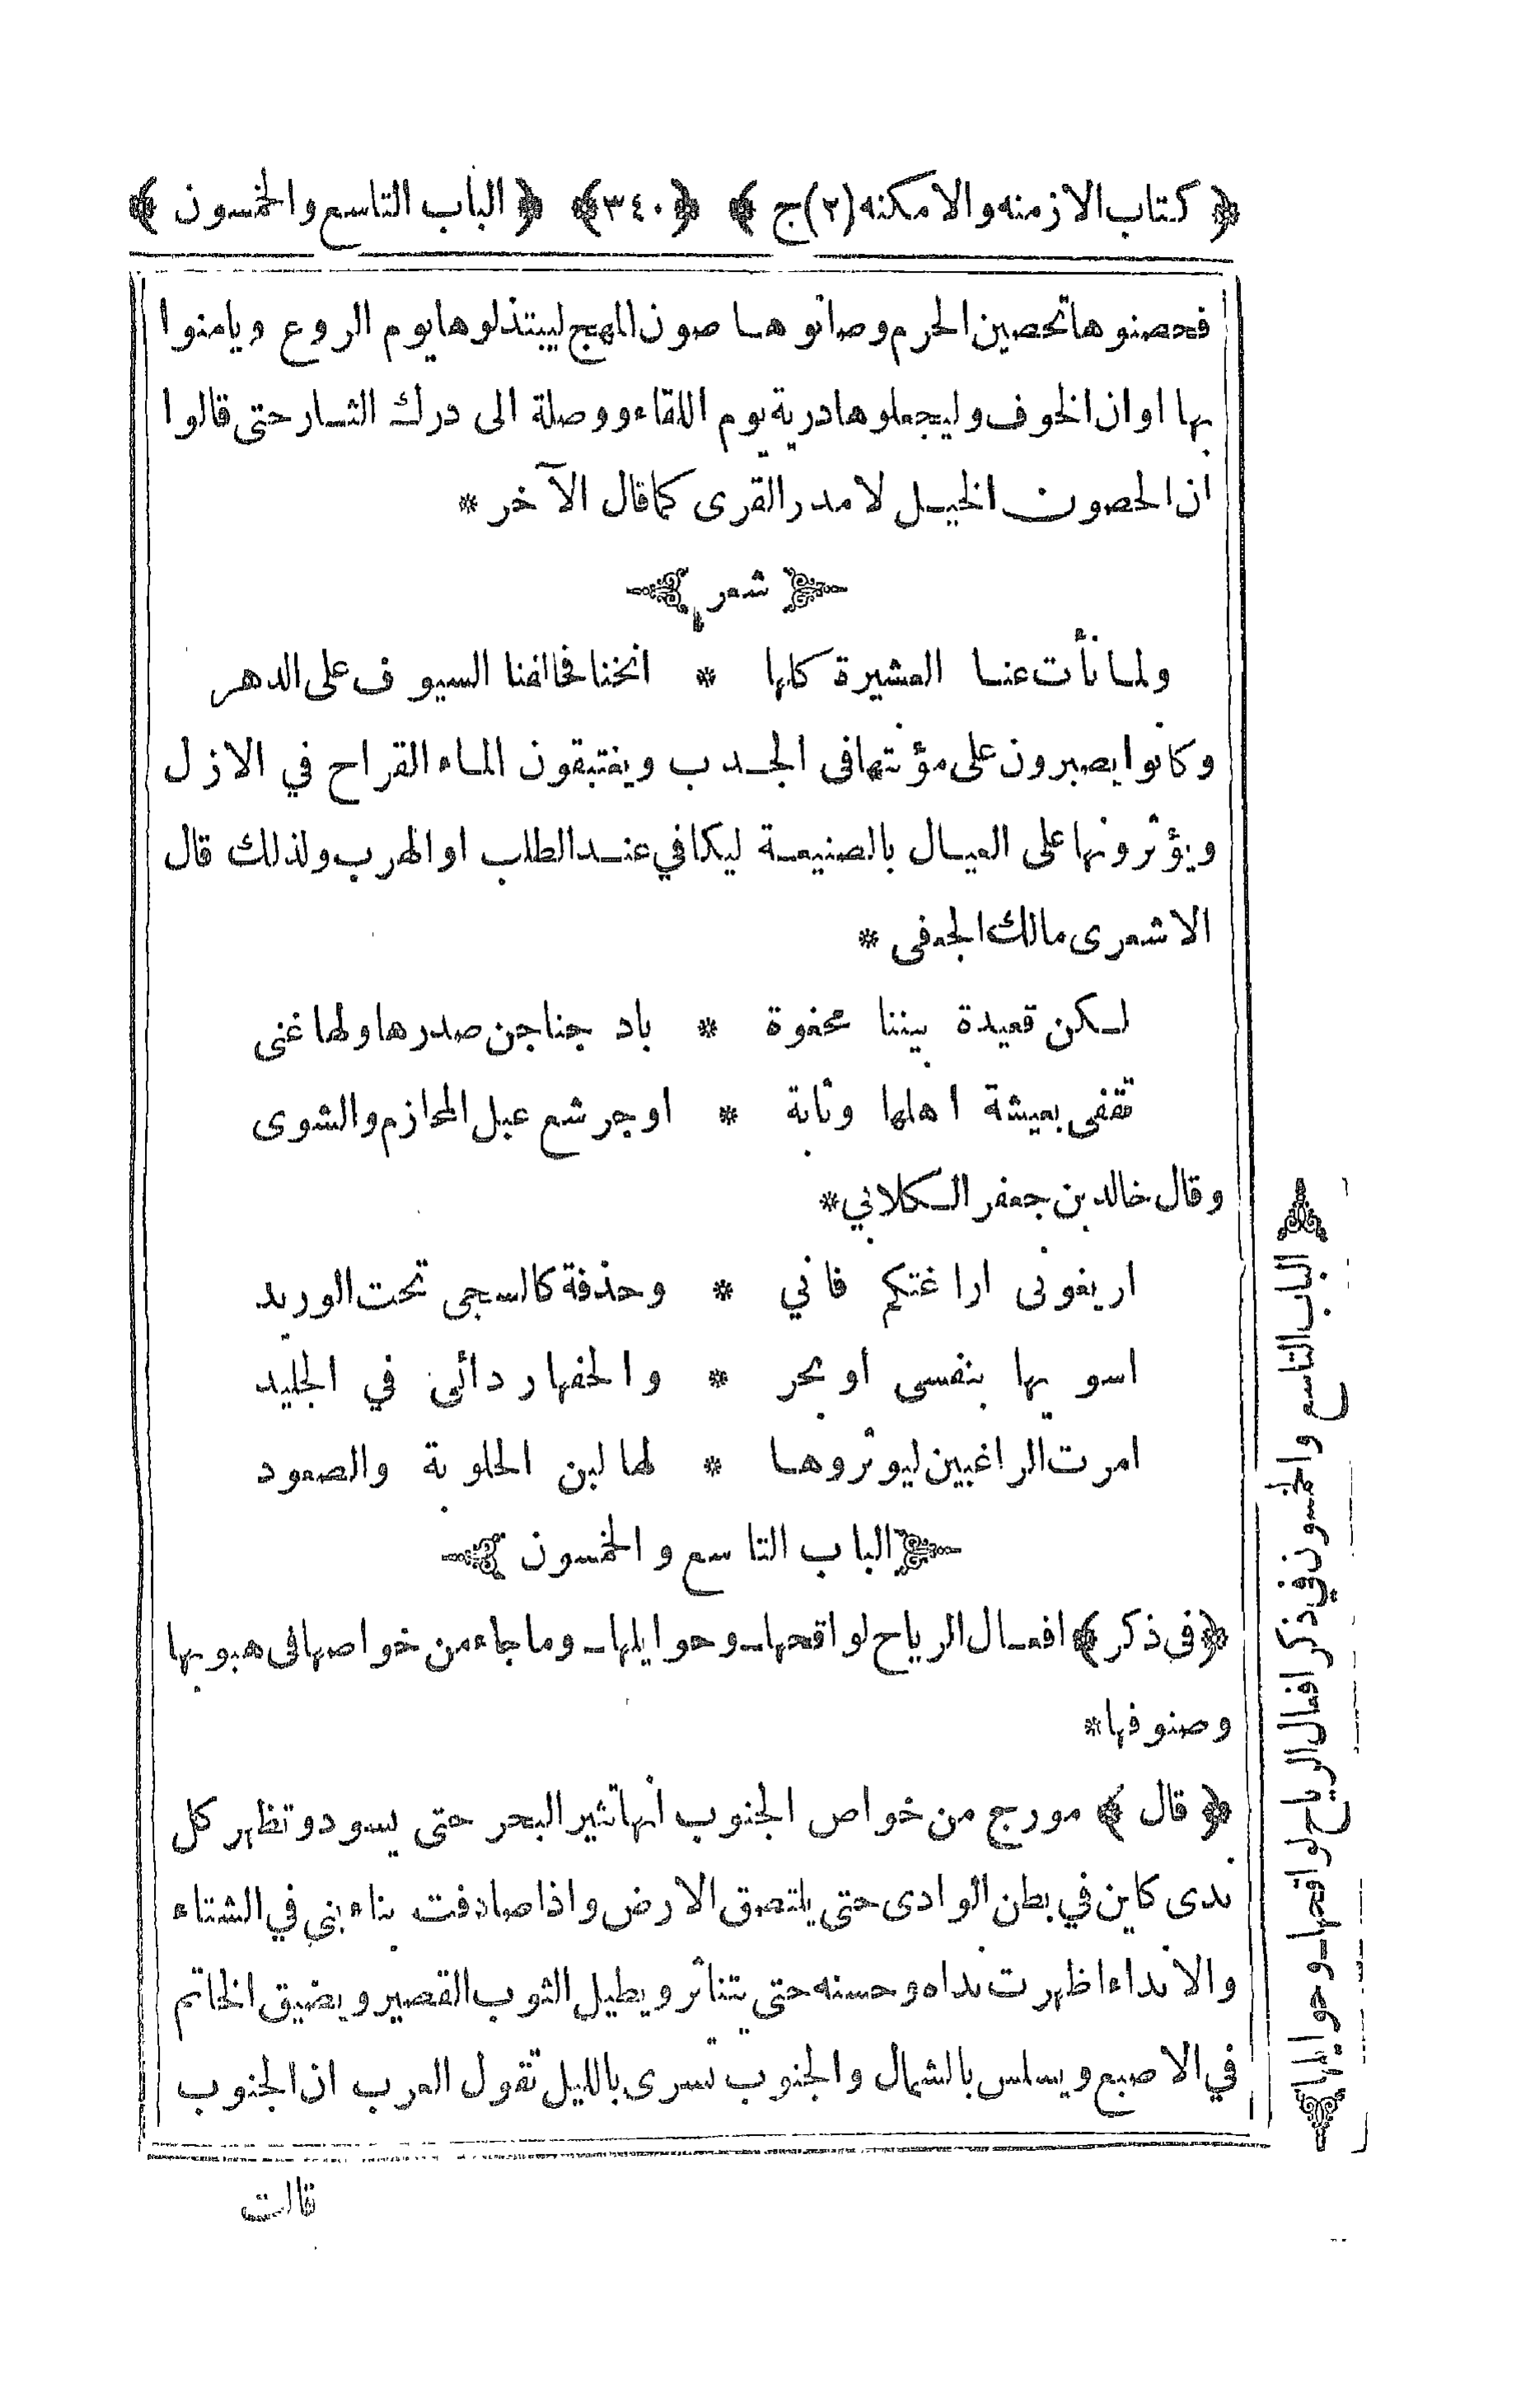 ﴿ كتاب الازمنه والامكنه (٢) ج ﴾ ﴿٣٤٠﴾ ﴿ الباب التاسع والخمسون ﴾
فحصنوها تحصين الحرم وصانوها صون المهج ليبتذلوها يوم الروع ويامنوا
بها اوان الخوف وليجعلوها درية يوم اللقاء ووصلة الى درك الثار حتى قالوا
ان الحصون الخيل لا مدر القرى كما قال الآخر *
شعر
ولما نأت عنا العشيرة كلها * انخنا فحالفنا السيوف على الدهر
وكانوا يصبرون على مؤنتها فى الجدب ويغتبقون الماء القراح في الازل
ويؤثرونها على العيال بالصنيعة ليكافي عند الطلب او الهرب ولذلك قال
الاشعرى مالك الجعفى *
لكن قعيدة بيننا مجفوة * باد جناجن صدرها ولها غنى
تقفى بعيشة اهلها وثابة * او جرشع عبل المحازم والشوى
وقال خالد بن جعفر الكلابي *
اريغونى اراغتكم فاني * وحذفة كالسجى تحت الوريد
اسويها بنفسى او بجر * والحفها ردائى في الجليد
امرت الراغبين ليوثروها * لها لبن الحلوبة والصعود
الباب التاسع والخمسون
﴿فى ذكر﴾ افعال الرياح لواقحها وحوايلها وما جاء من خواصها فى هبوبها
وصنوفها *
﴿ قال ﴾ مورج من خواص الجنوب انها تثير البحر حتى يسود وتظهر كل
ندى كاين في بطن الوادى حتى يلتصق الارض واذا صادفت بناء بني في الشتاء
والانداء اظهرت نداه وحسنه حتى يتناثر ويطيل الثوب القصير ويضيق الخاتم
في الاصبع ويسلس بالشمال والجنوب تسرى بالليل تقول العرب ان الجنوب
قالت
الباب التاسع والخمسون في ذكر افعال الرياح لواقحها وحوايلها